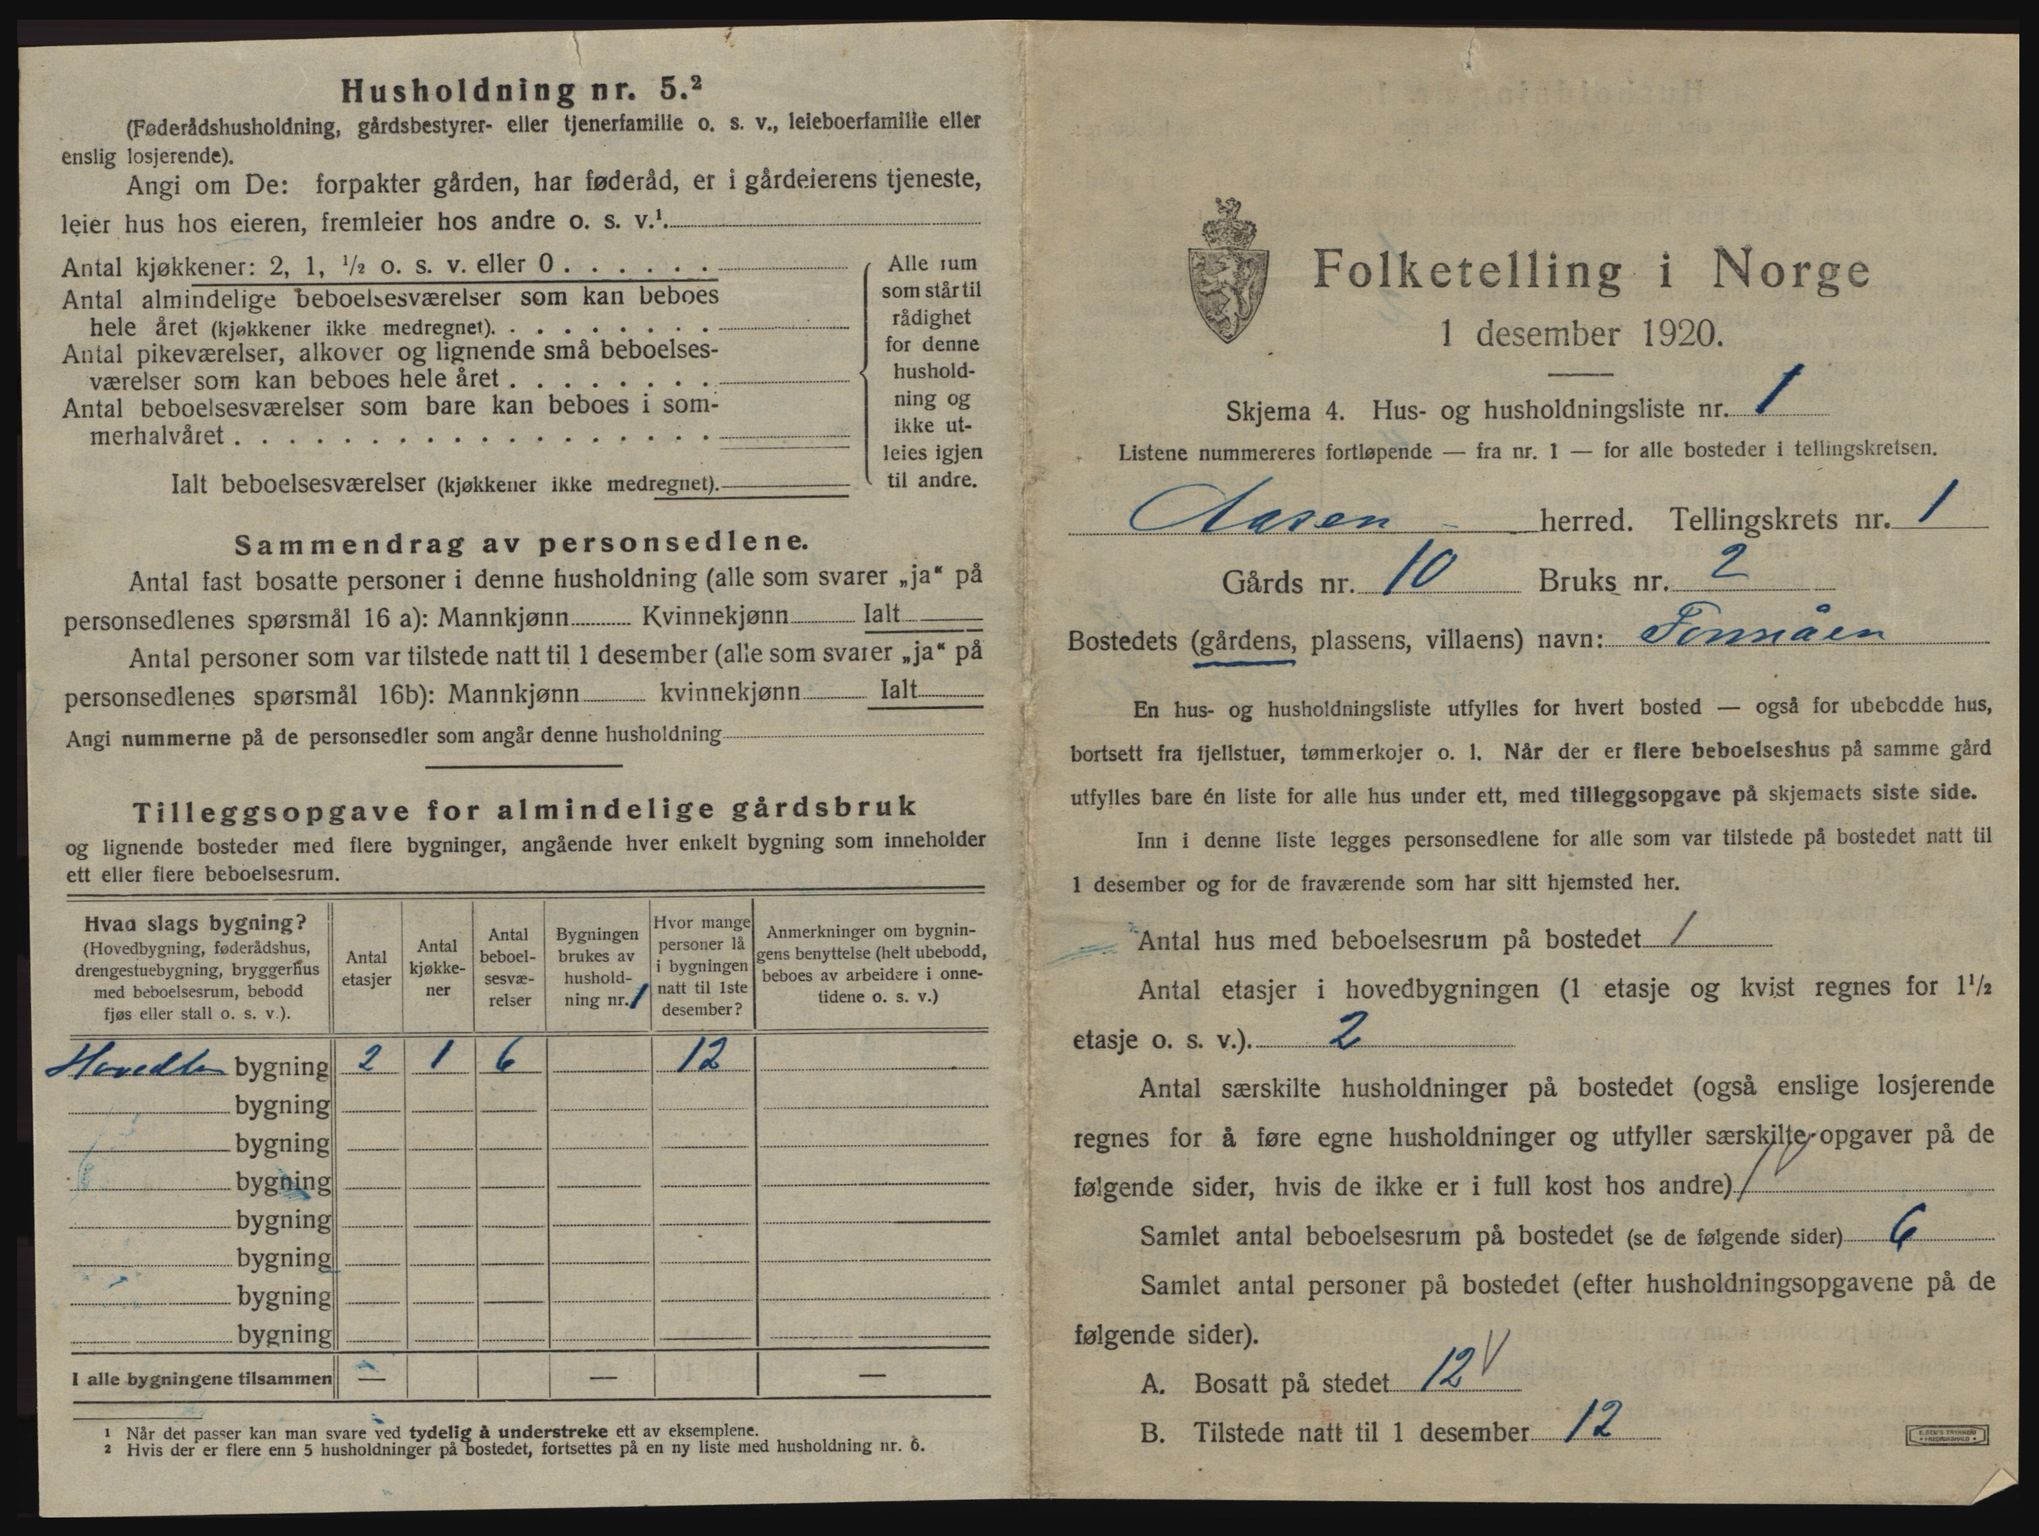 Husholdning nr. 5.²
(Føderådshusholdning, gårdsbestyrer- eller tjenerfamilie o. s. v., leieboerfamilie eller
enslig losjerende).
Angi om De: forpakter gården, har føderåd, er i gårdeierens tjeneste,
leier hus hos eieren, fremleier hos andre o. s. v.¹.
Antal kjøkkener: 2, 1, ½ o. s. v. eller 0 . . . . . .
Antal almindelige beboelsesværelser som kan beboes
hele året (kjøkkener ikke medregnet). . . . . . . . .
Antal pikeværelser, alkover og lignende små beboelses-
værelser som kan beboes hele året . . . . . . . .
Antal beboelsesværelser som bare kan beboes i som-
merhalvåret . . . . . . . . . . . . . . . . . .
Ialt beboelsesværelser (kjøkkener ikke medregnet).
Alle rum
som står til
rådighet
for denne
hushold-
ning og
ikke ut-
leies igjen
til andre.
Sammendrag av personsedlene.
Antal fast bosatte personer i denne husholdning (alle som svarer „ja“ på
personsedlenes spørsmål 16 a): Mannkjønn Kvinnekjønn Ialt
Antal personer som var tilstede natt til 1 desember (alle som svarer „ja“ på
personsedlenes spørsmål 16b): Mannkjønn kvinnekjønn Ialt
Angi nummerne på de personsedler som angår denne husholdning
Tilleggsopgave for almindelige gårdsbruk
og lignende bosteder med flere bygninger, angående hver enkelt bygning som inneholder
ett eller flere beboelsesrum.
Hvad slags bygning?
(Hovedbygning, føderådshus,
drengestuebygning, bryggerhus
med beboelsesrum, bebodd
fjøs eller stall o. s. v.).
Antal
etasjer
Antal
kjøkke-
ner
Antal
beboel-
sesvæ-
relser
Bygningen
brukes av
hushold-
ning nr. 1
Hvor mange
personer lå
i bygningen
natt til 1ste
desember?
Anmerkninger om bygnin-
gens benyttelse (helt ubebodd,
beboes av arbeidere i onne-
tidene o. s. v.)
bygning 2 1 6 12
bygning
bygning
bygning
bygning
bygning
bygning
bygning
I alle bygningene tilsammen — — —
¹ Når det passer kan man svare ved tydelig å understreke ett av eksemplene.
² Hvis der er flere enn 5 husholdninger på bostedet, fortsettes på en ny liste med husholdning nr. 6.
Folketelling i Norge
1 desember 1920.
Skjema 4. Hus- og husholdningsliste nr. 1
Listene nummereres fortløpende — fra nr. 1 — for alle bosteder i tellingskretsen.
Aasen herred. Tellingskrets nr. 1
Gårds nr. 10 Bruks nr. 2
Bostedets (gårdens, plassens, villaens) navn:
En hus- og husholdningsliste utfylles for hvert bosted — også for ubebodde hus,
bortsett fra fjellstuer, tømmerkojer o. l. Når der er flere beboelseshus på samme gård
utfylles bare én liste for alle hus under ett, med tilleggsopgave på skjemaets siste side.
Inn i denne liste legges personsedlene for alle som var tilstede på bostedet natt til
1 desember og for de fraværende som har sitt hjemsted her.
Antal hus med beboelsesrum på bostedet 1
Antal etasjer i hovedbygningen (1 etasje og kvist regnes for 1½
etasje o. s. v.). 2
Antal særskilte husholdninger på bostedet (også enslige losjerende
regnes for å føre egne husholdninger og utfyller særskilte opgaver på de
følgende sider, hvis de ikke er i full kost hos andre) 1
Samlet antal beboelsesrum på bostedet (se de følgende sider) 6
Samlet antal personer på bostedet (efter husholdningsopgavene på de
følgende sider).
A. Bosatt på stedet 12
B. Tilstede natt til 1 desember 12